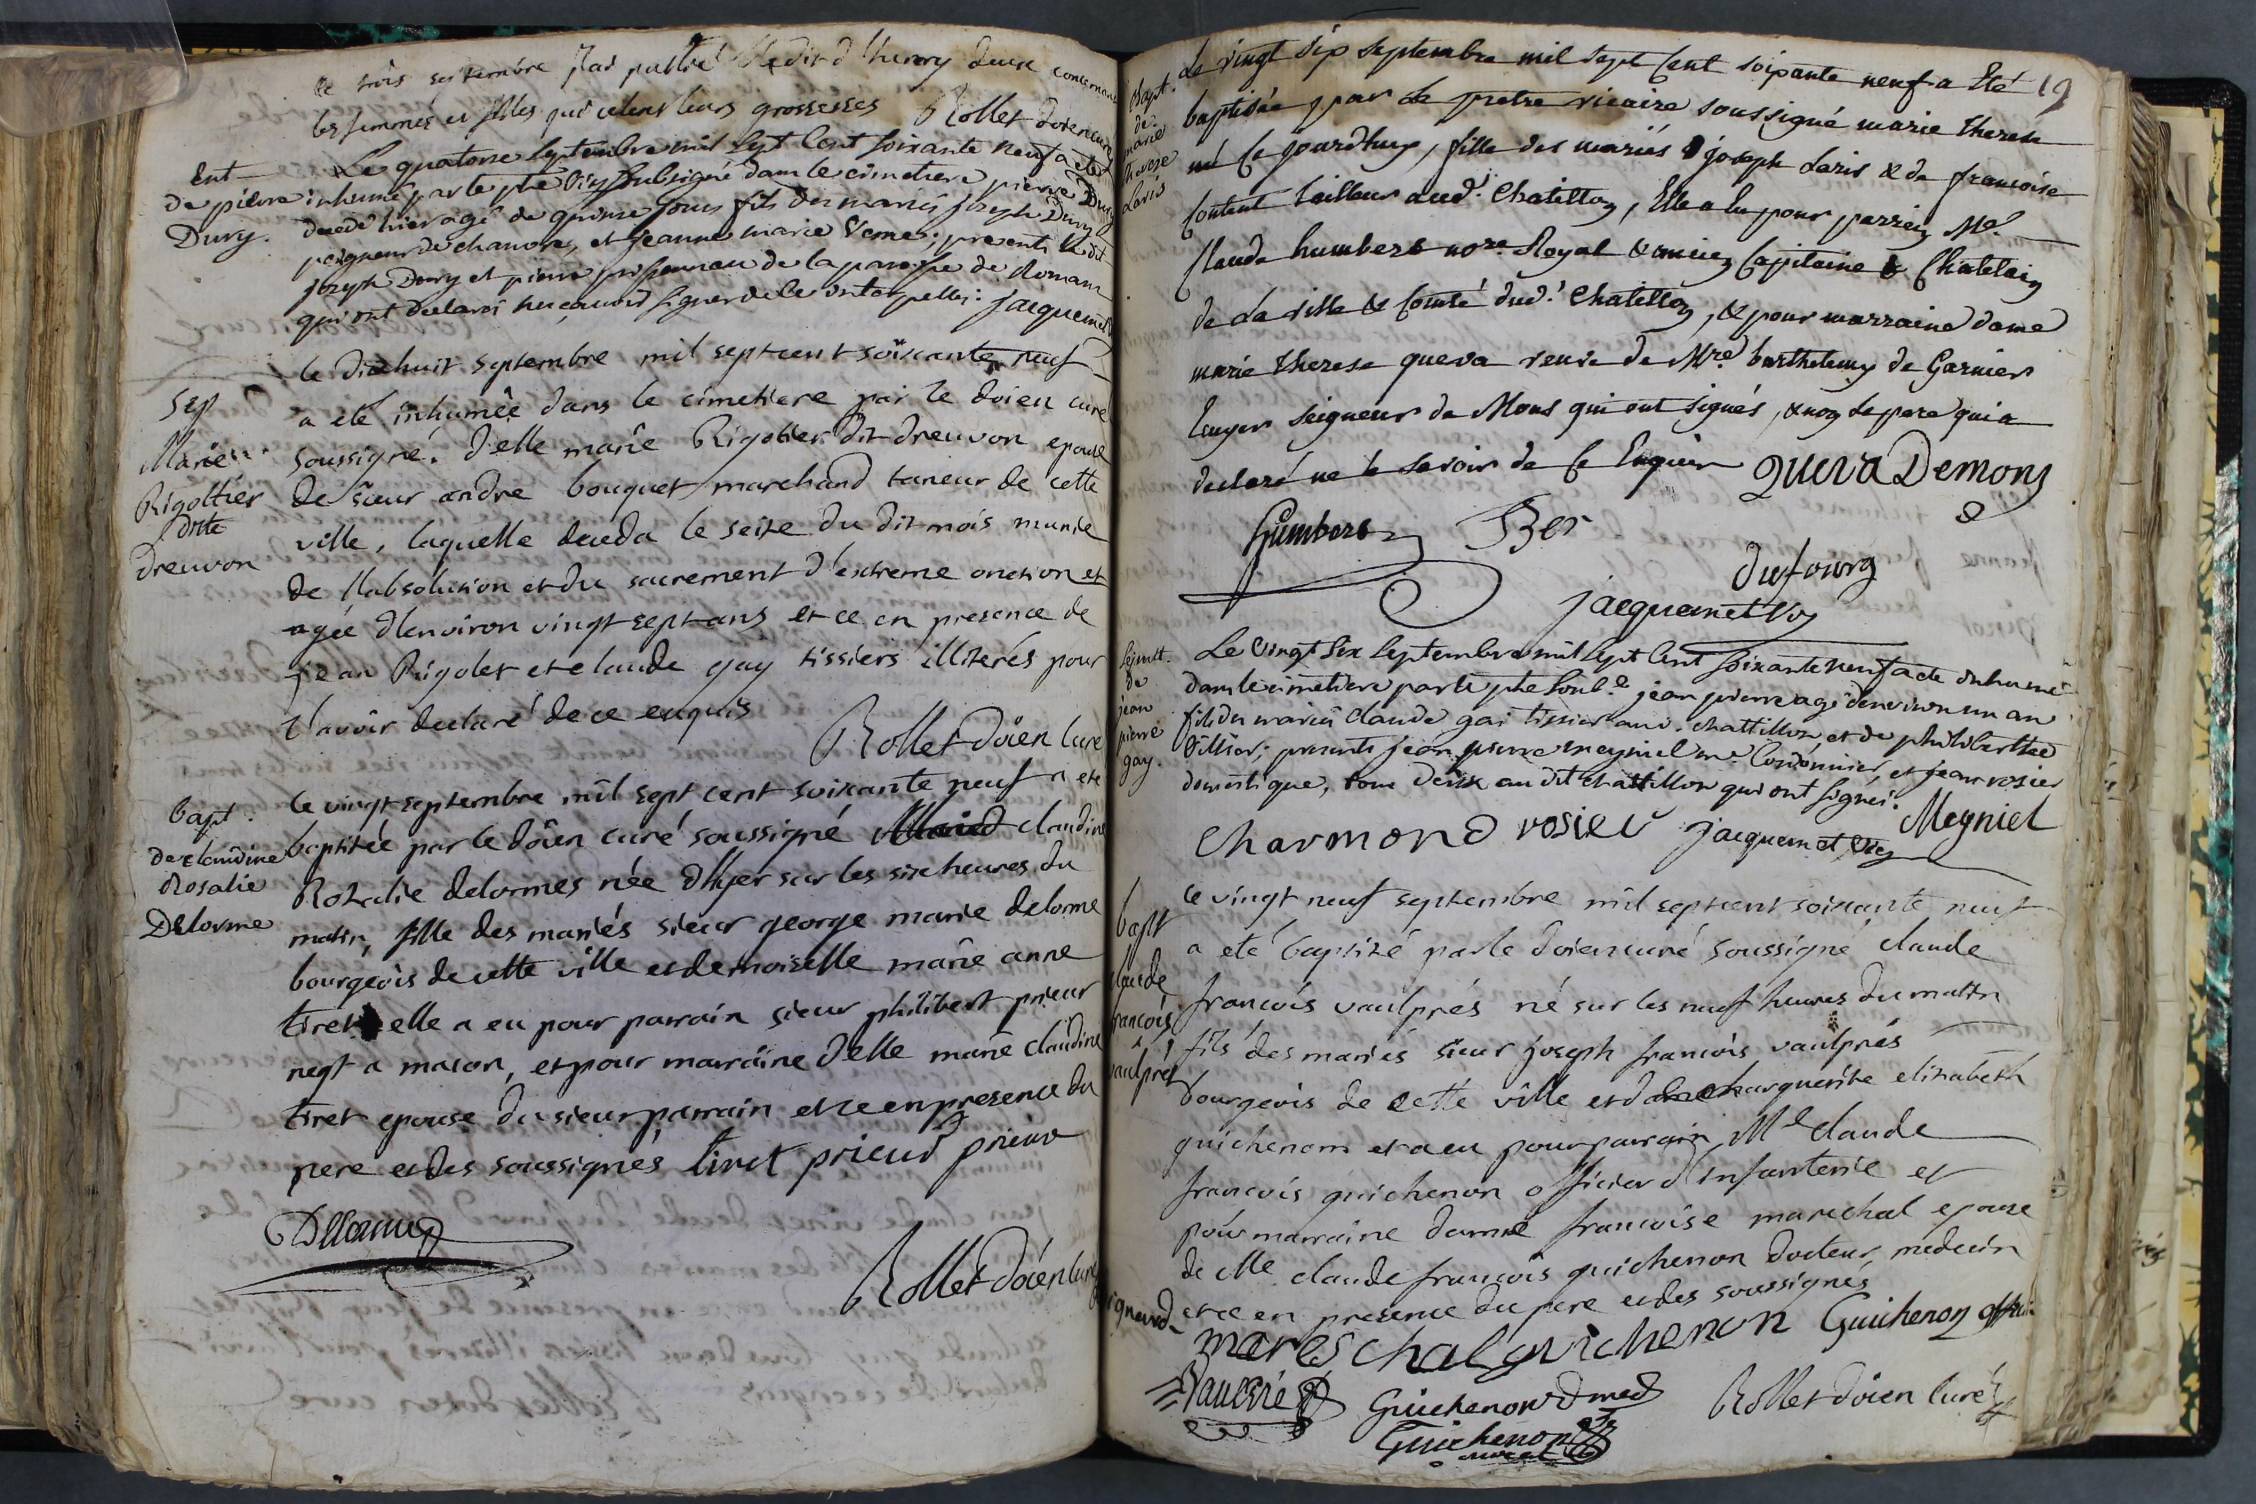 Le trois septembre j'ai publié l'edit d'henry deux concernant
les femmes et filles qui celent leurs grossesses Rollet doien curé
Ent
de pierre
Dury.
Le quatorze septembre mil sept cent soixante neuf a eté
inhumé par le ptre vic soussigné dans le cimetiere pierre Dury
decedé hier agé de quinze jours fils des mariés joseph Dury
peigneur de chanvre, et jeanne marie ; presents ledit
joseph Dury et pierre de la paroisse de Romans
qui ont declaré ne scavoir signer de ce interpellés. jacquemet
Sep
Marie
Rigottier
dite
Dreuvon
le dixhuit septembre mil septcent soixante neuf
a eté inhumée dans le cimetiere par le doien curé
soussigné. d'elle marie Rigottier dit dreuvon epouse
de sieur andre bouquet marchand taneur de cette
ville, laquelle deceda le seize du dit mois munie
de l'absolution et du sacrement d'extreme onction et
agée d'environ vingt sept ans et ce en presence de
jean Rigolet et claude gay tissiers illiterés pour
l'avoir declaré de ce enquis
Rollet doien curé
bapt.
de claudine
Rosalie
Delorme
le vingt septembre mil sept cent soixante neuf a ete
baptisée par le doien curé soussigné claudine
Rosalie delormes née d'hyer sur les six heures du
matin, fille des mariés sieur george marie delorme
bourgeois de cette ville et demoiselle marie anne
tiret elle a eu pour parrain sieur philibert prieur
negt a macon, et pour marraine d'elle marie claudine
tiret epouse du sieur parrain et ce en presence du
pere et des soussignés tiret prieur prieur
Delorme
Rollet doien curé
19
Bapt.
de
marie
therese
Laris
Le vingt six septembre mil sept cent soixante neuf a Eté
baptisée par le pretre vicaire soussigné marie therese
né ce jourdhuy, fille des mariés joseph Laris & de francoise
Coutent tailleur aud.t Chatillon, Elle a Eu pour parrein Me.
Claude humbert no.re Royal & ancien Capitaine & Chatelain
de la ville & Comté dud.t Chatillon, & pour marraine dame
marie therese queva veuve de Mre barthelemy de Garnier
Ecuyer seigneur de Mons qui ont signés, & non le pere qui a
declaré ne le savoir de ce Enquis queva Demons
humbert Ber
dufourg
jacquemet vic
Sepult.
de
jean
pierre
gay.
Le vingt six septembre mil sept cent soixante neuf a eté inhumé
dans le cimetiere par le ptre sous.é jean pierre agé denviron un an
fils des mariés claude gai tissier aud. chattillon et de philiberthe
; presents jean pierre meyniel me. Cordonnier, et jean rosier
domestique, tous deux au dit chattillon qui ont signés. Meyniel
Charmond rosier jacquemet vic
bapt
claude
francois
vaulprés
le vingt neuf septembre mil septcent soixante neuf
a eté baptizé par le doien curé soussigné claude
francois vaulprés né sur les neuf heures du matin
fils des mariés sieur joseph francois vaulprés
bourgeois de cette ville et dame marguerite elizabeth
guichenon et a eu pour parrain Me claude
francois guichenon officier d'infanterie et
pour marraine damne francoise marechal epouse
de Me claude francois guichenon docteur medecin
et ce en presence du pere et des soussignés
mareschal guichenon Guichenon officier
Vaulpré Guichenon D med Rollet doien curé
Guichenon